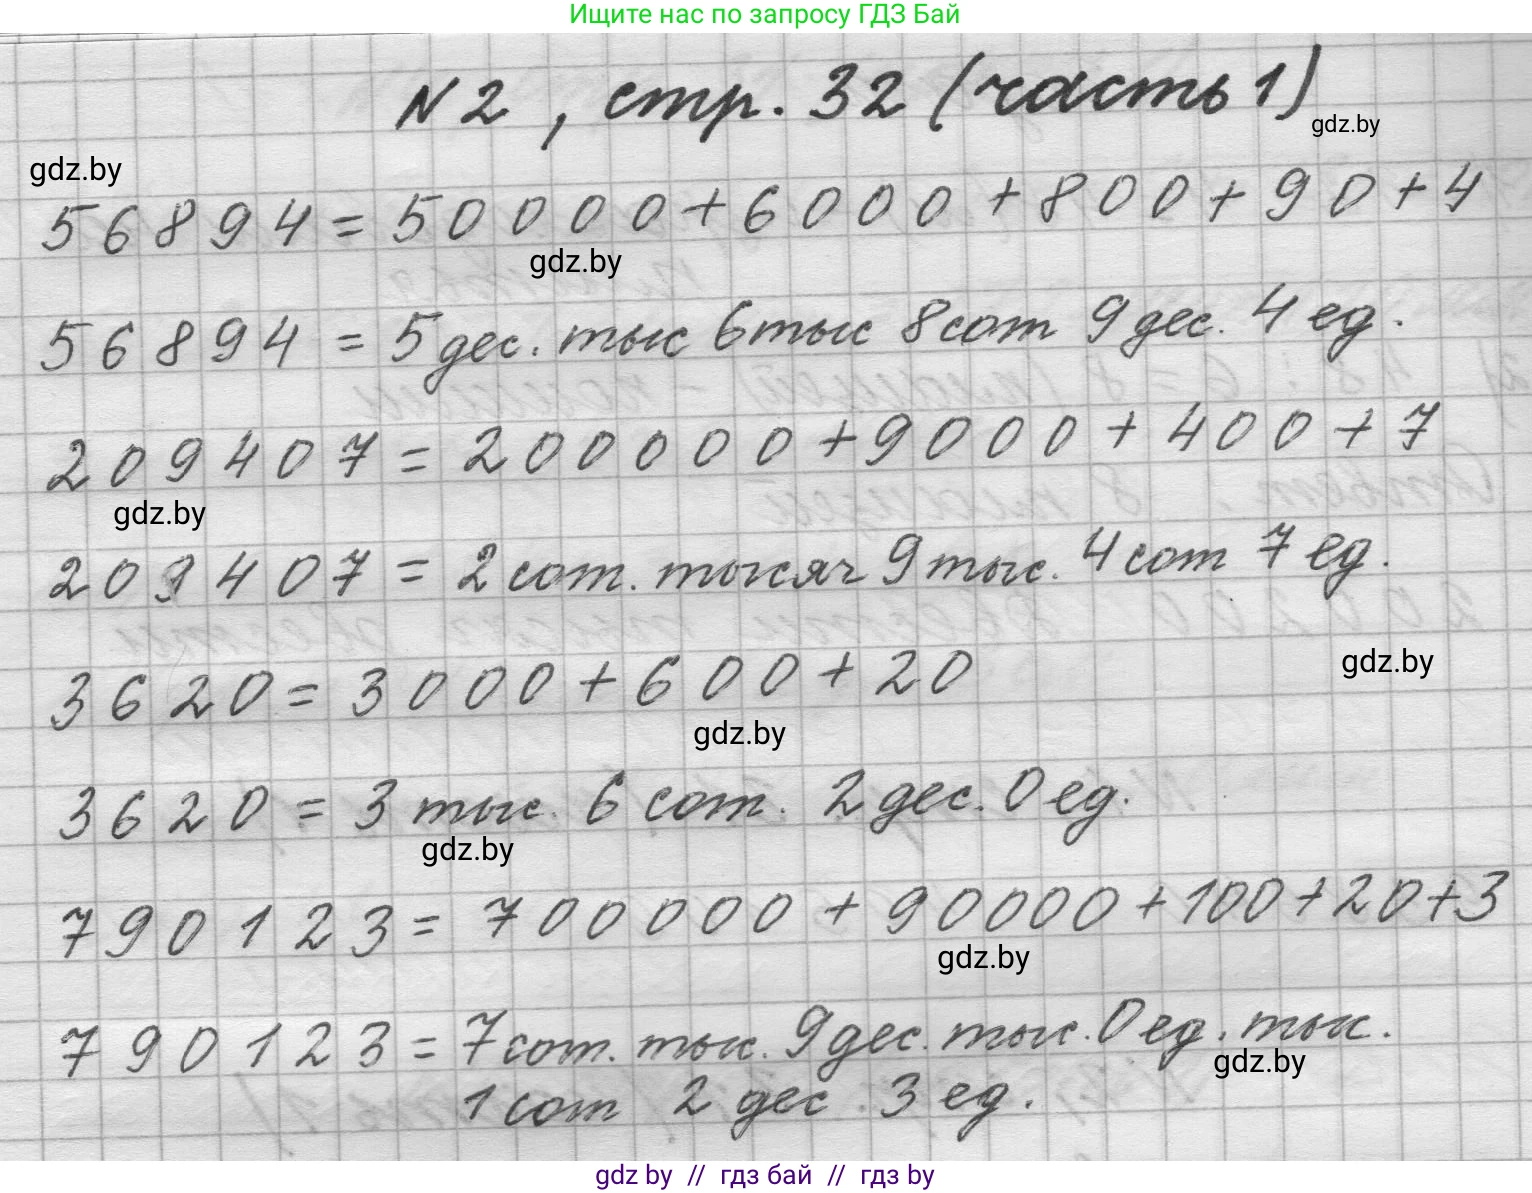 Ищите нас по запросу ГДЗ Бай
N2, стр. 32 (часть 1)
gdz.by
gdz.by
56894 = 50000 + 6000 + 800 + 90 + 4
gdz.by
56894 = 5 дес. тыс 6 тыс 8 сот 9 дес. 4 ед.
209407 = 200000 + 9000 + 400 + 7
gdz.by
209407 = 2 сот. тысяч 9 тыс. 4 сот 7 ед.
gdz.by
3620 = 3000 + 600 + 20
gdz.by
3620 = 3 тыс. 6 сот. 2 дес. 0 ед.
gdz.by
790123 = 700000 + 90000 + 100 + 20 + 3
gdz.by
790123 = 7 сот. тыс. 9 дес. тыс. 0 ед. тыс.
gdz.by
1 сот 2 дес. 3 ед.
gdz by // гдз бай // гдз by